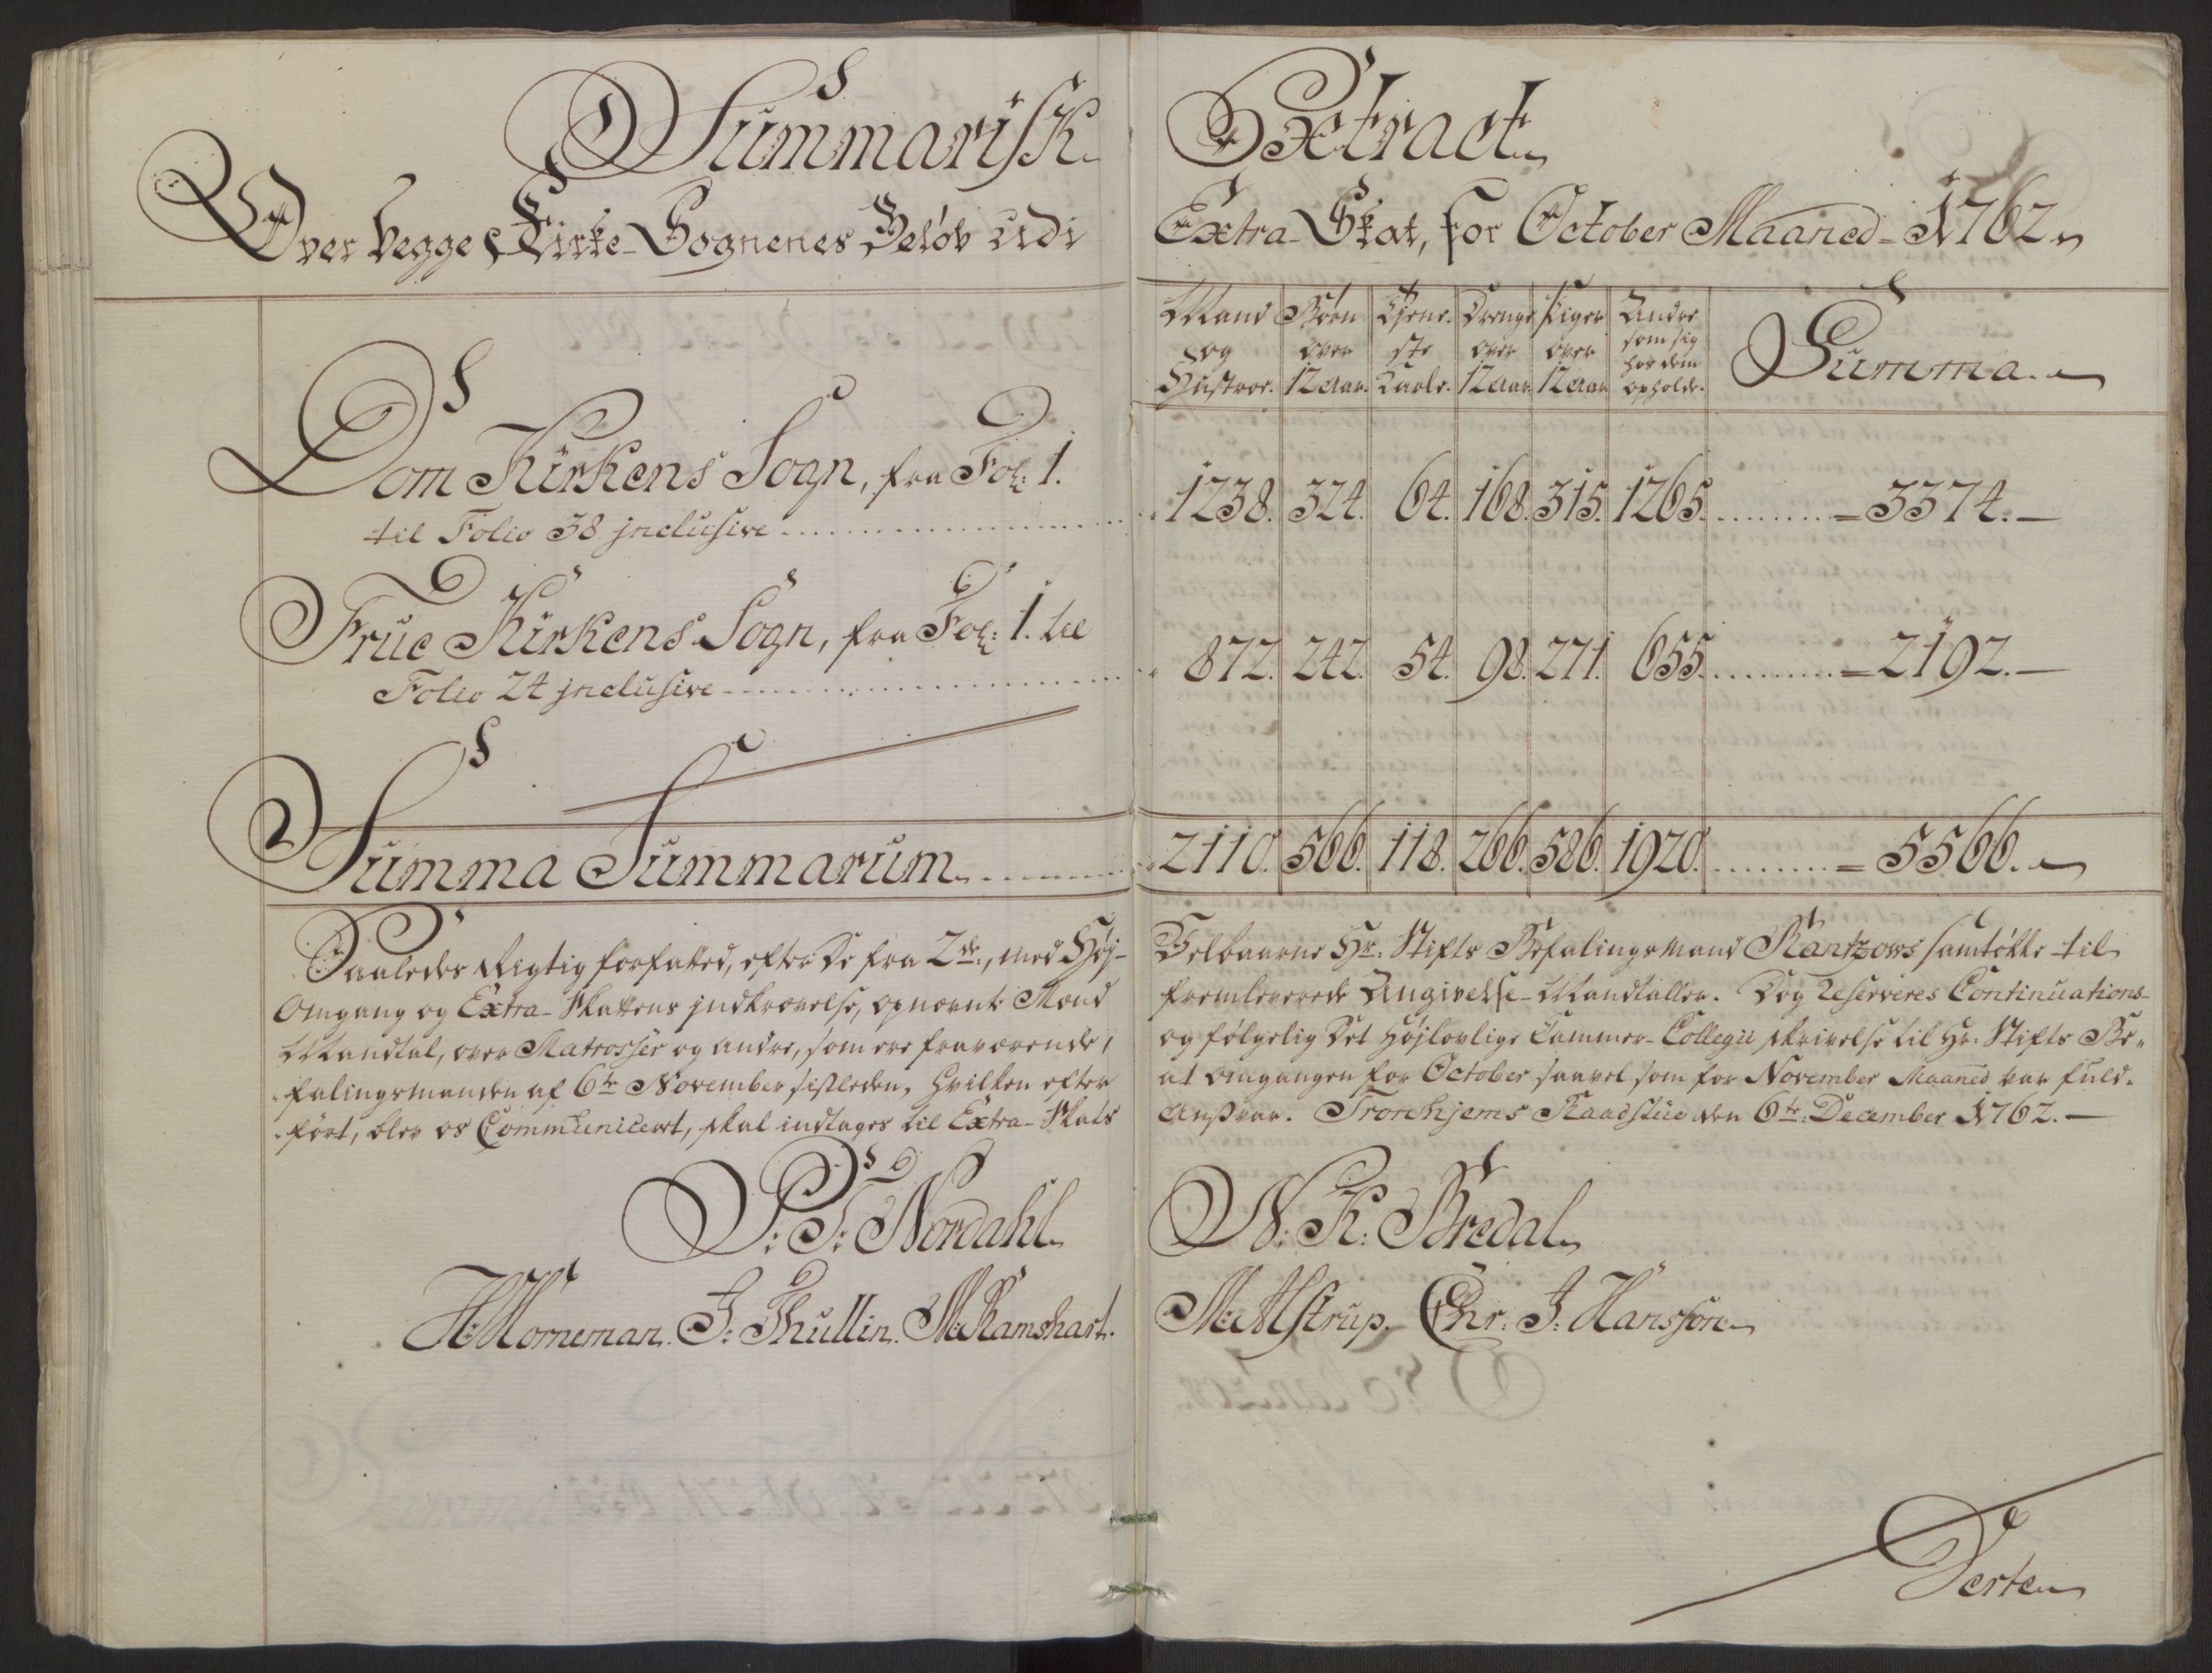 Summarisk Extract
Over begge Kirke-Sognenes Beløb udi Extra-Skat, for October Maaned 1762
Mand og Hustroe. Børn over 12 Aar. Tjene-ste Karle. Drenge over 12 Aar Piger over 12 Aar Andre som sig hos dem opholde. Summa.
Dom Kirkens Sogn, fra Fol: 1.
til Folio 38 jnclusive 1238. 324. 64. 168. 315. 1265. = 3374.
Frue Kirkens Sogn, fra Fol: 1. til
Folio 24 jnclusive 872. 242. 54. 98. 271. 655. = 2192.
Summa Summarum 2110. 566. 118. 266. 586. 1920. = 5566.
Saaledes Rigtig forfatted, efter De fra 2de, med Høj- Velbaarne Hr: Stifts Befalingsmand Rantzows samtøkke til
Omgang og Extra-Skattens jndkrævelse, opnævnte Mænd fremleverede Angivelse-Mandtaller. Dog Reserveres Continuations-
Mandtal, over Matrosser og andre, som ere fraværende, og følgelig Det Højlovlige Cammer-Collegii skrivelse til Hr. Stifts Be-
falingsmanden af 6te November sistleden, hvilken efter at omgangen for October saavel som for November Maaned var fuld-
ført, blev os Communiceret, skal indtages til Extra-Skats Ansvar. Tronhjems Raadstue den 6te: December 1762.
P: T: Nordahl N: K: Bredal
H: Horneman. J: Thullin. M: Ramshart. M: Alstrup. Chr: J: Hansson
Verte